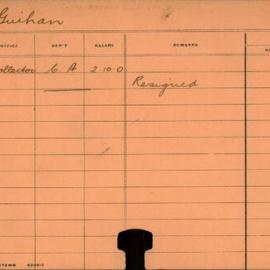 Guihan
OFFICE DEP'T SALARY REMARKS
ollector C. A 2.10.0 Resigned